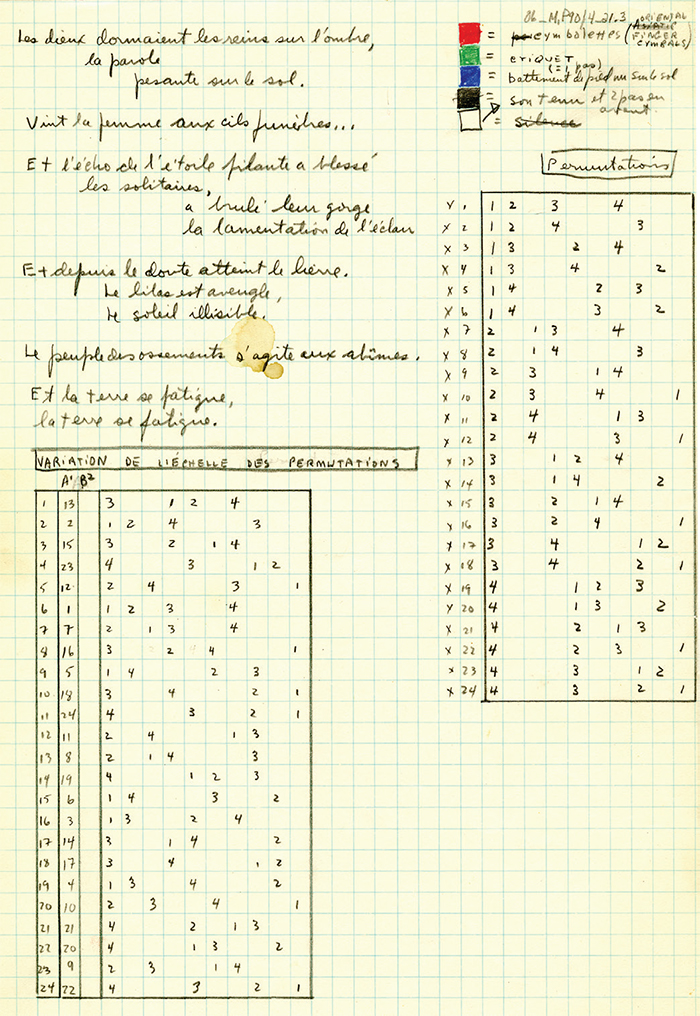 Les dieux dormaient les reins sur l'ombre,
la parole
pesante sur le sol.
Vint la femme aux cils funèbres...
Et l'écho de l'étoile filante a blessé
les solitaires,
a brulé leur gorge
la lamentation de l'éclair
Et depuis le doute atteint le lierre.
Le lilas est aveugle,
le soleil illisible.
Le peuple des ossements s'agite aux abîmes.
Et la terre se fatigue,
la terre se fatigue.
06_M,P90/4_21.3
= cymbalettes (ORIENTAL
ASIATIC
FINGER
CYMBALS)
= CRIQUET
(=1 pas)
= battement de pied nu sur le sol
= son tenu et 2 pas en
avant
= silence
Permutations
√ 1 1 2 3 4
x 2 1 2 4 3
x 3 1 3 2 4
x 4 1 3 4 2
x 5 1 4 2 3
x 6 1 4 3 2
x 7 2 1 3 4
x 8 2 1 4 3
x 9 2 3 1 4
x 10 2 3 4 1
x 11 2 4 1 3
x 12 2 4 3 1
x 13 3 1 2 4
x 14 3 1 4 2
x 15 3 2 1 4
x 16 3 2 4 1
x 17 3 4 1 2
x 18 3 4 2 1
x 19 4 1 2 3
x 20 4 1 3 2
x 21 4 2 1 3
x 22 4 2 3 1
x 23 4 3 1 2
x 24 4 3 2 1
VARIATION DE L'ÉCHELLE DES PERMUTATIONS
A' B²
1 13 3 1 2 4
2 2 1 2 4 3
3 15 3 2 1 4
4 23 4 3 1 2
5 12 2 4 3 1
6 1 1 2 3 4
7 7 2 1 3 4
8 16 3 2 4 1
9 5 1 4 2 3
10 18 3 4 2 1
11 24 4 3 2 1
12 11 2 4 1 3
13 8 2 1 4 3
14 19 4 1 2 3
15 6 1 4 3 2
16 3 1 3 2 4
17 14 3 1 4 2
18 17 3 4 1 2
19 4 1 3 4 2
20 10 2 3 4 1
21 21 4 2 1 3
22 20 4 1 3 2
23 9 2 3 1 4
24 22 4 3 2 1